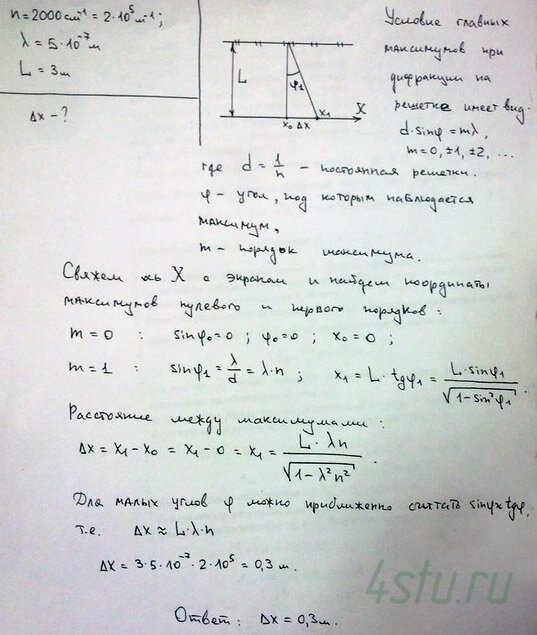 n = 2000 cm⁻¹ = 2·10⁵ м⁻¹;
λ = 5·10⁻⁷ м
L = 3 м
Δx - ?
L
φ₁
x₀ Δx x₁
X
Условие главных
максимумов при
дифракции на
решетке имеет вид:
d·sinφ = mλ,
m = 0, ±1, ±2, ...
где d = 1/n - постоянная решетки.
φ - угол, под которым наблюдается
максимум,
m - порядок максимума.
Свяжем ось X с экраном и найдем координаты
максимумов нулевого и первого порядков:
m = 0 : sinφ₀ = 0 ; φ₀ = 0 ; x₀ = 0 ;
m = 1 : sinφ₁ = λ/d = λ·n ; x₁ = L·tgφ₁ = L·sinφ₁/√(1-sin²φ₁).
Расстояние между максимумами:
Δx = x₁ - x₀ = x₁ - 0 = x₁ = L·λn/√(1-λ²n²).
Для малых углов φ можно приближенно считать sinφ≈tgφ,
т.е. Δx ≈ L·λ·n
Δx = 3·5·10⁻⁷·2·10⁵ = 0,3 м.
4stu.ru
Ответ: Δx = 0,3м.